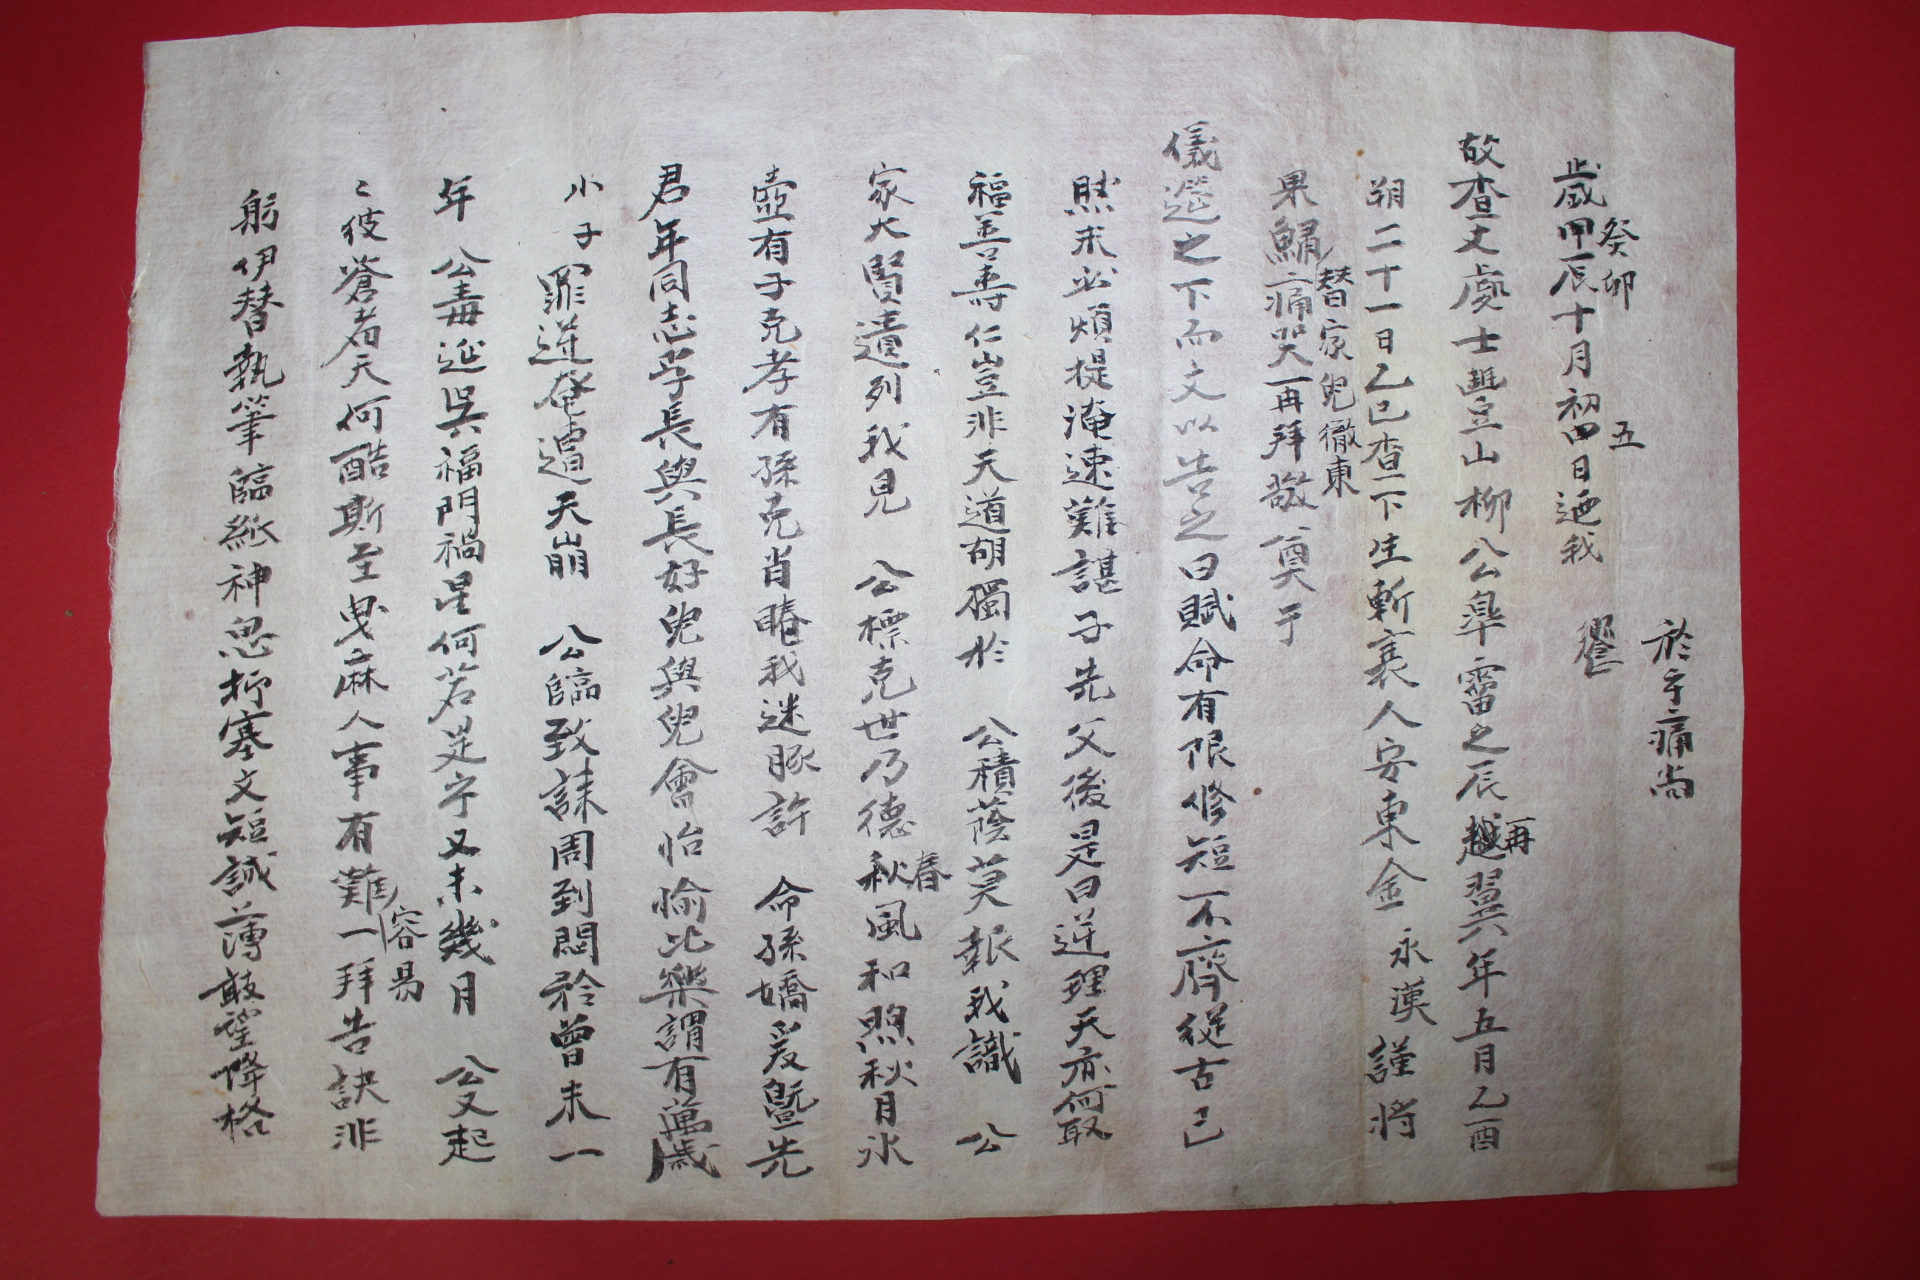 於乎痛尚
饗
歲甲辰十月初四日迺我
癸卯
五
故查丈處士豊山柳公皐甯之辰越翌六年五月乙酉
再
朔二十一日乙巳查下生斬衰人安東金永漢謹將
果鱐痛哭再拜敬奠于
替家兒徹東
儀筵之下而文以告之曰賦命有限修短不齊從古已
然未必煩提淹速難諶子先父後是曰逆理天亦何取
福善壽仁豈非天道胡獨於 公積蔭莫報我識 公
家大賢遺列我見 公標克世乃德秋風和煦秋月氷
春
壺有子克孝有孫克肖睠我迷豚許 命孫嬌爰曁先
君年同志孚長與長好兒與兒會怡愉比樂謂有萬歲
小子罪逆奄遭天崩 公臨致誄周到悶矜曾未一
年 公毒延吳福門禍是何若是宁又未幾月 公又起
〻彼蒼者天何酷斯至曳麻人事有難一拜告訣非
容易
躬伊替執筆臨紙神忽抒塞文短誠薄敢望降格